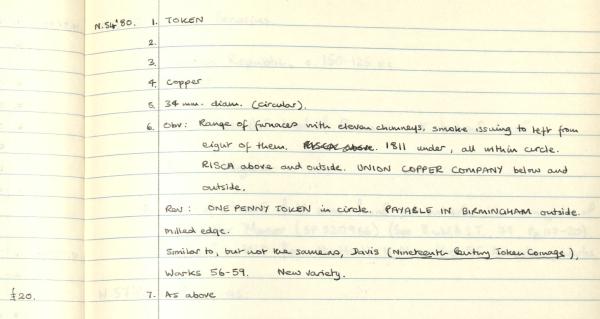 N.54'80. 1. TOKEN
2.
3.
4. Copper
5. 34 mm. diam. (circular).
6. Obv: Range of furnaces with eleven chimneys, smoke issuing to left from
eight of them. RISCA above. 1811 under, all within circle.
RISCA above and outside. UNION COPPER COMPANY below and
outside.
Rev: ONE PENNY TOKEN in circle. PAYABLE IN BIRMINGHAM outside.
Milled edge.
Similar to, but not the same as, Davis (Nineteenth Century Token Coinage),
Works 56-59. New variety.
£20. 7. As above